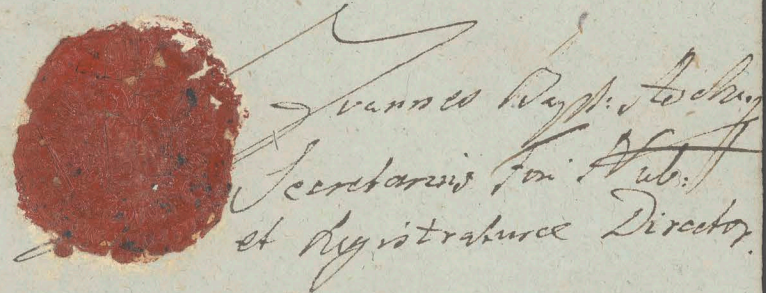 Ioannes Bapt:
Secretarius Fori Nub:
et Registraturae Director.